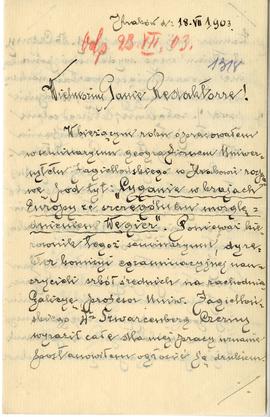 Kraków d. 18. VII 1903
Odp 23 VII. 03.
Wielmożny Panie Redaktorze!
W bieżącym roku opracowałem
w seminaryum geograficznem Uniwer-
sytetu Jagiellońskiego w Krakowie
pod tyt: "Cyganie w krajach
Europy ze szczególnem uwzglę-
dnieniem Węgier". Ponieważ kie-
rownik tegoż seminaryum, dyre-
ktor komisyi egzaminacyjnej nau-
czycieli szkół średnich na zachodnią
Galicyę profesor Uniw. Jagielloń-
skiego Szwarcenberg Czerny
wyraził całe dla mej pracy uznanie
postanowiłem ogłosić ją drukiem